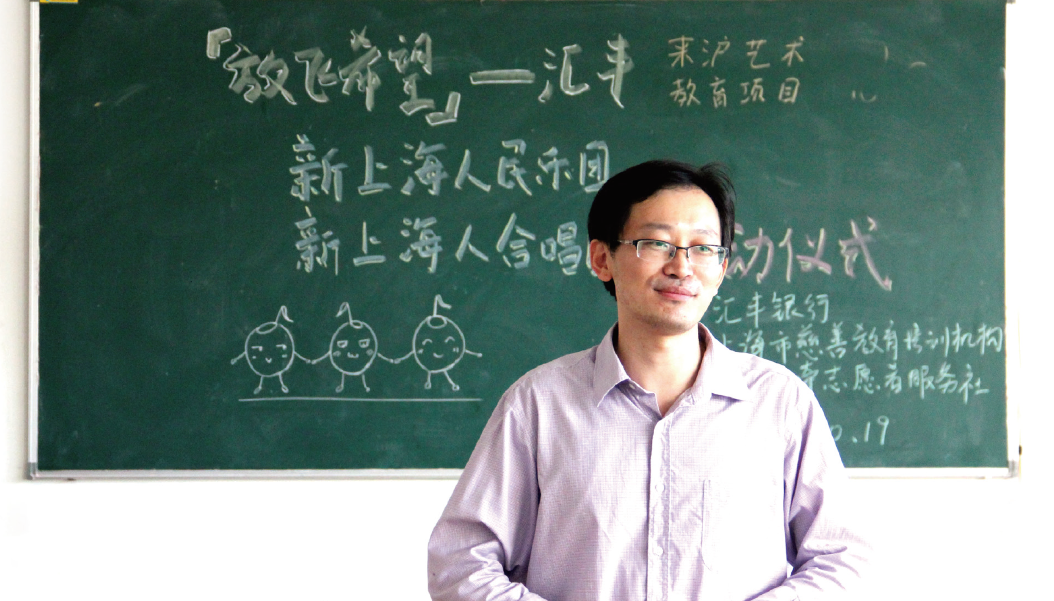 『放飞希望』—汇丰
来沪艺术
教育项目
新上海人民乐团
新上海人合唱
动仪式
汇丰银行
上海市慈善教育培训机构
志愿者服务社
0.19